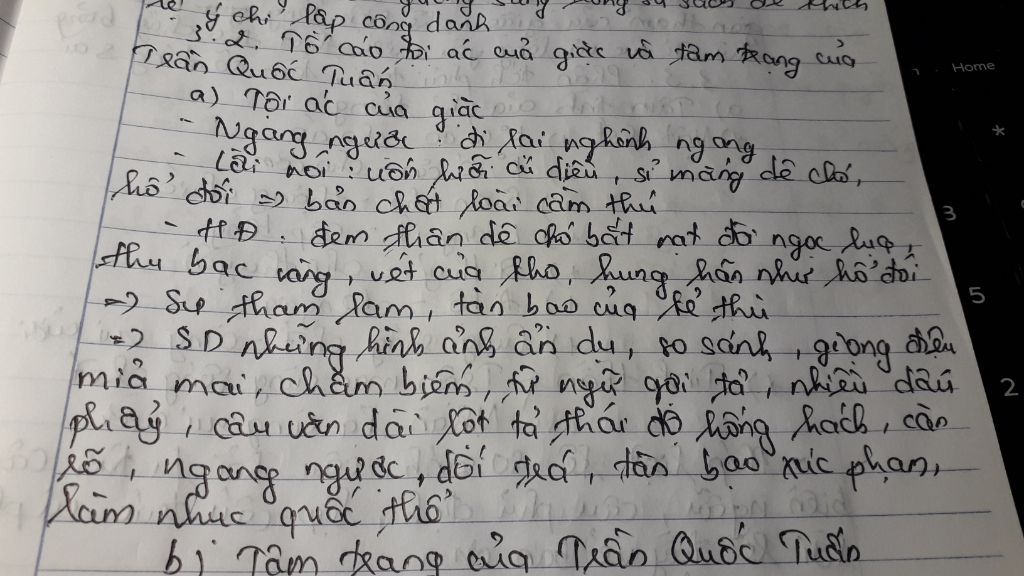 ý chí lập công danh
3.2. Tố cáo tội ác của giặc và tâm trạng của
Trần Quốc Tuấn
a) Tội ác của giặc
- Ngang ngược: đi lại nghênh ngang
- Lời nói: uốn lưỡi cú diều, sỉ mắng dê chó,
hổ đói => bản chất loài cầm thú
- HĐ: đem thân dê chó bắt nạt đòi ngọc lụa,
thu bạc vàng, vét của kho, hung hãn như hổ đói
=> Sự tham lam, tàn bạo của kẻ thù
=> SD những hình ảnh ẩn dụ, so sánh, giọng điệu
mỉa mai, châm biếm, từ ngữ gợi tả, nhiều dấu
phẩy, câu văn dài lột tả thái độ hống hách, càn
rỡ, ngang ngược, đòi trả, tàn bạo xúc phạm,
làm nhục quốc thể
b) Tâm trạng của Trần Quốc Tuấn
Home
*
3
5
2